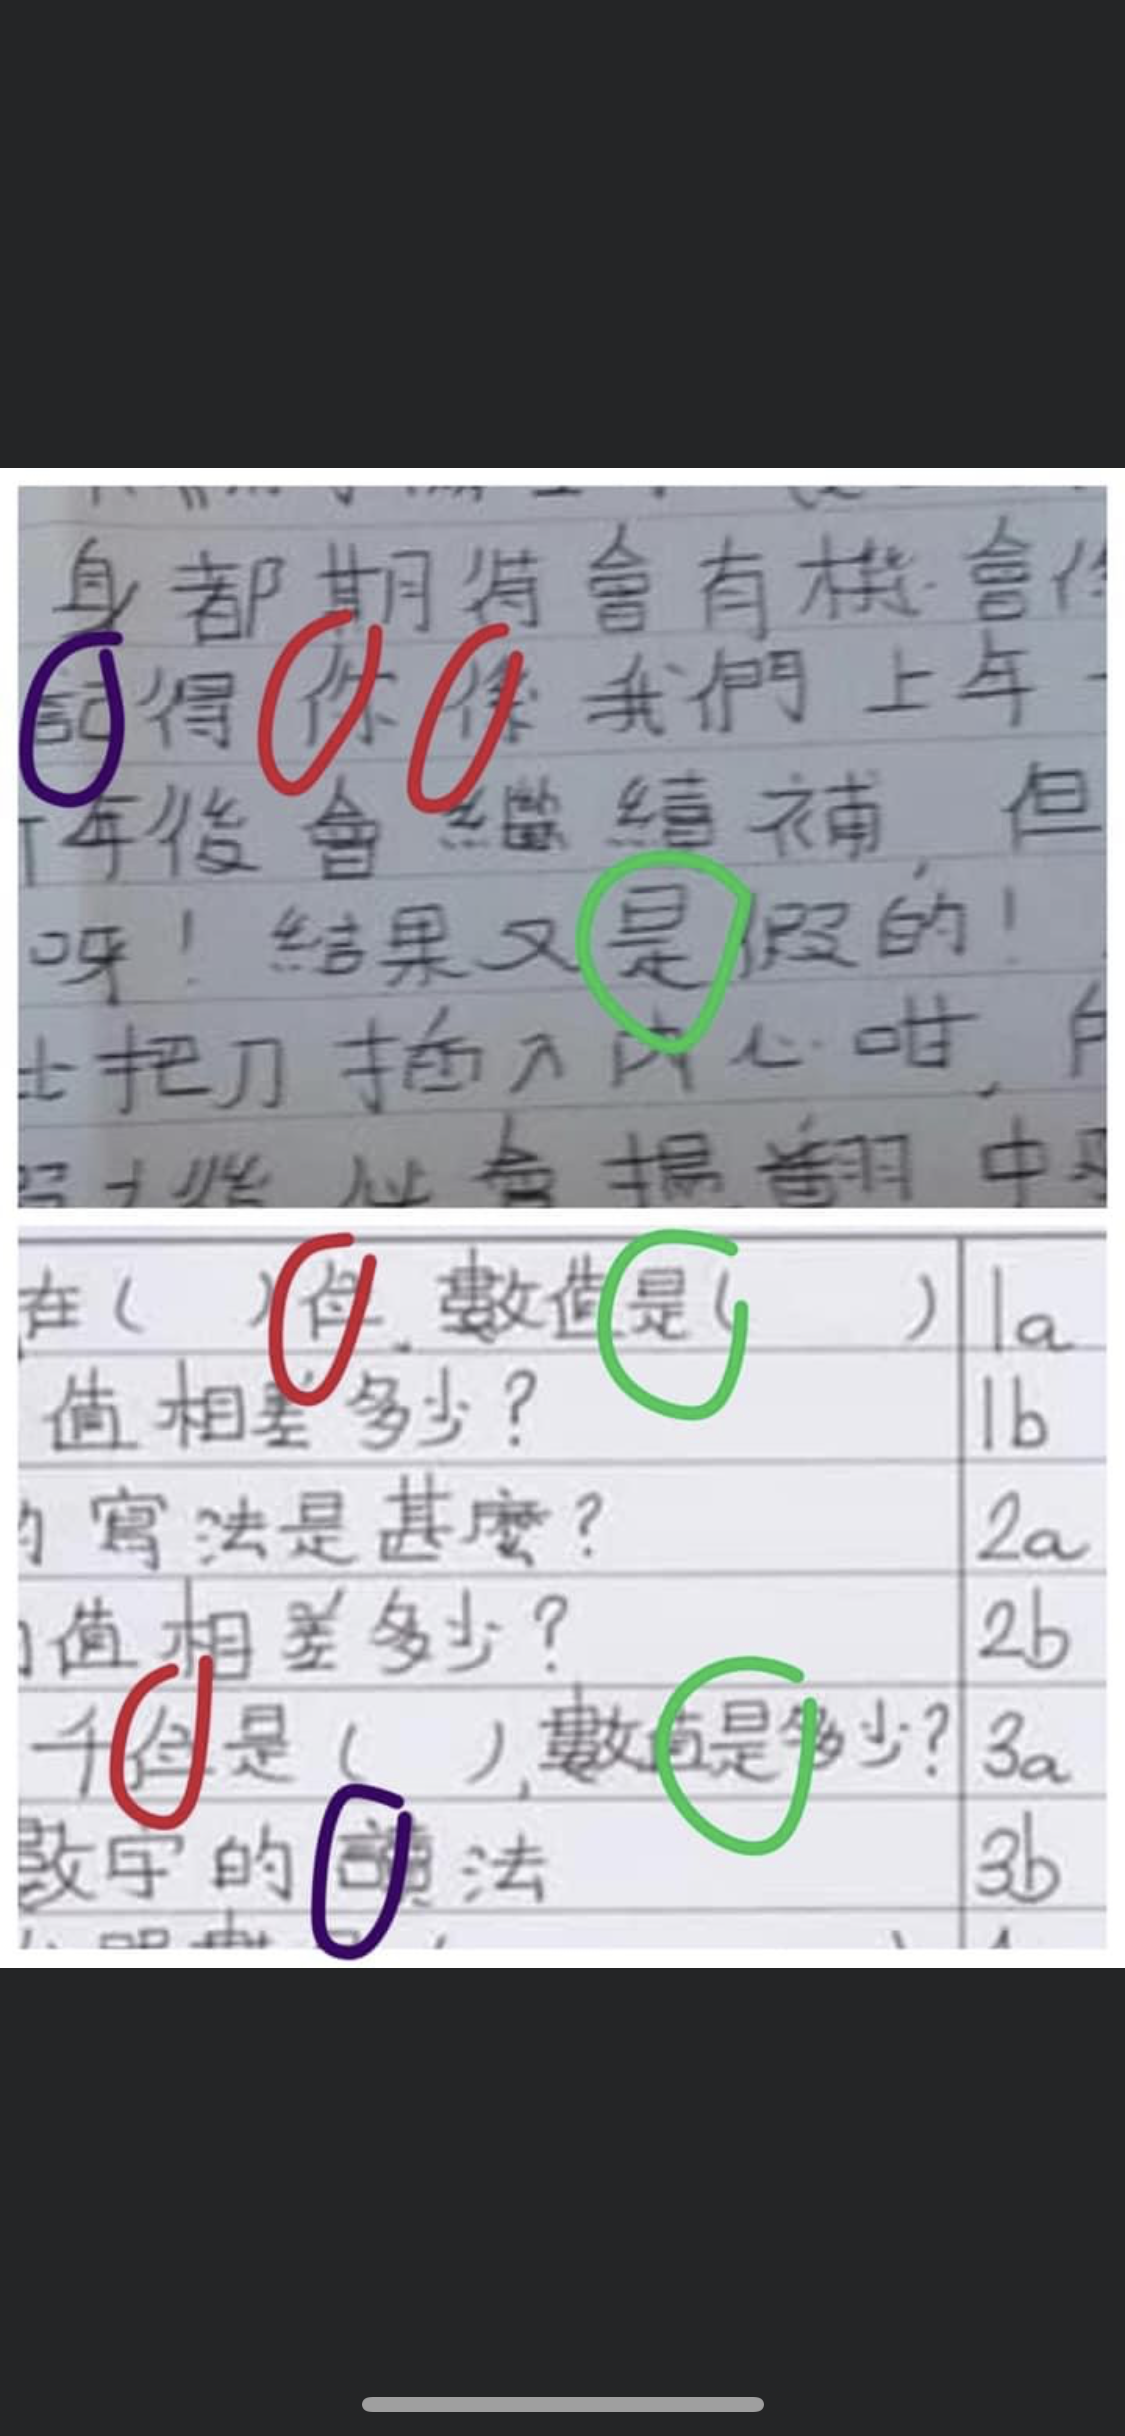 身都期待會有機會
記得你後我們上年
年後會繼續補，但
呀！結果又是假的！
把刀插入內心咁，
在（ ）位，數值是（ ） 1a
值相差多少？ 1b
寫法是甚麼？ 2a
值相差多少？ 2b
千位是（ ），數值是多少？ 3a
數字的讀法 3b